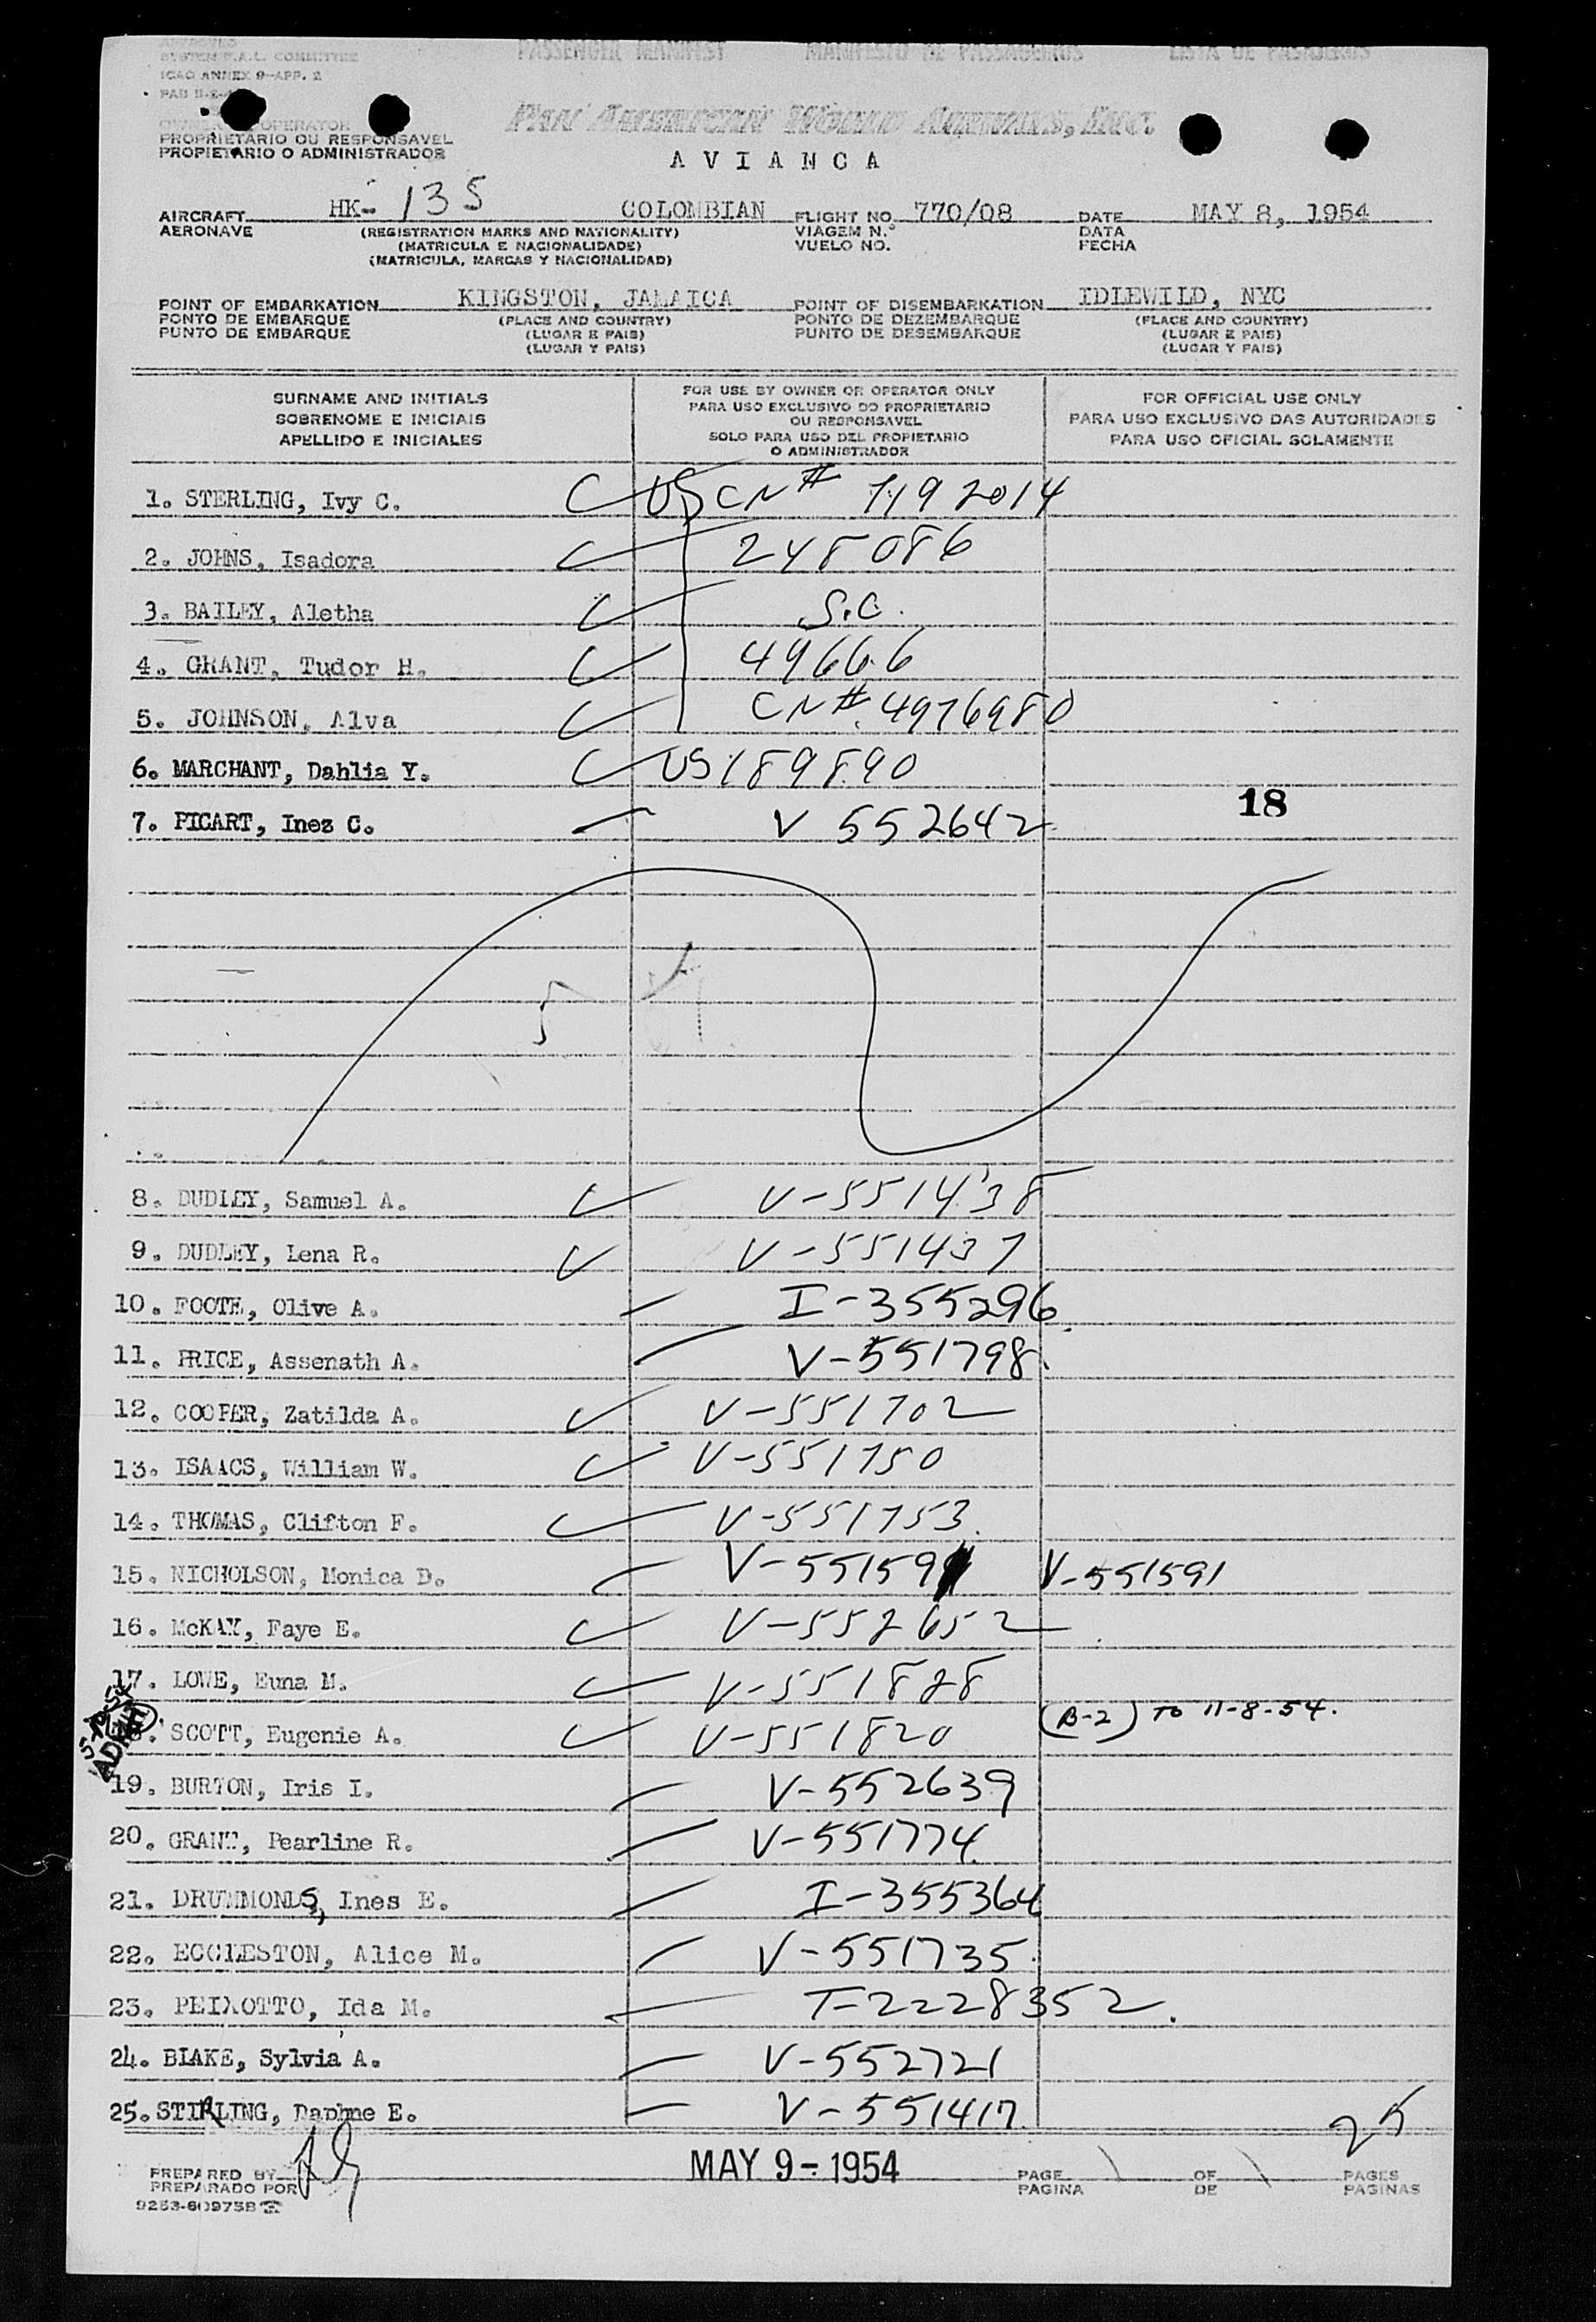 APPROVED
SYSTEM F.A.L. COMMITTEE
ICAO ANNEX 9-APP. 2
PASSENGER MANIFEST MANIFESTO DE PASSAGEIROS LISTA DE PASAJEROS
PAN AMERICAN WORLD AIRWAYS, INC.
OPERATOR
PROPRIETARIO OU RESPONSAVEL
PROPIETARIO O ADMINISTRADOR
AVIANCA
AIRCRAFT HK- 135 COLOMBIAN FLIGHT NO. 770/08 DATE MAY 8, 1954
AERONAVE (REGISTRATION MARKS AND NATIONALITY) VIAGEM N.° DATA
(MATRICULA E NACIONALIDADE) VUELO NO. FECHA
(MATRICULA, MARCAS Y NACIONALIDAD)
POINT OF EMBARKATION KINGSTON, JAMAICA POINT OF DISEMBARKATION IDLEWILD, NYC
PONTO DE EMBARQUE (PLACE AND COUNTRY) PONTO DE DEZEMBARQUE (PLACE AND COUNTRY)
PUNTO DE EMBARQUE (LUGAR E PAIS) PUNTO DE DESEMBARQUE (LUGAR E PAIS)
(LUGAR Y PAIS) (LUGAR Y PAIS)
SURNAME AND INITIALS FOR USE BY OWNER OR OPERATOR ONLY FOR OFFICIAL USE ONLY
SOBRENOME E INICIAIS PARA USO EXCLUSIVO DO PROPRIETARIO PARA USO EXCLUSIVO DAS AUTORIDADES
OU RESPONSAVEL
APELLIDO E INICIALES SOLO PARA USO DEL PROPIETARIO PARA USO OFICIAL SOLAMENTE
O ADMINISTRADOR
1. STERLING, Ivy C. US CN# 7192014
2. JOHNS, Isadora 248086
3. BAILEY, Aletha S.C.
4. GRANT, Tudor H. 49666
5. JOHNSON, Alva CN# 4976980
6. MARCHANT, Dahlia Y. US 189890
18
7. PICART, Inez C. V 552642
8. DUDLEY, Samuel A. V-551438
9. DUDLEY, Lena R. V-551437
10. FOOTE, Olive A. I-355296
11. PRICE, Assenath A. V-551798
12. COOPER, Zatilda A. V-551702
13. ISAACS, William W. V-551750
14. THOMAS, Clifton F. V-551753
15. NICHOLSON, Monica D. V-55159 V-551591
16. McKAY, Faye E. V-552652
17. LOWE, Euna M. V-551828
SCOTT, Eugenie A. V-551820 (B-2) TO 11-8-54.
19. BURTON, Iris I. V-552639
20. GRANT, Pearline R. V-551774
21. DRUMMONDS, Ines E. I-355364
22. ECCLESTON, Alice M. V-551735
23. PEIXOTTO, Ida M. T-2228352
24. BLAKE, Sylvia A. V-552721
25. STIRLING, Daphne E. V-551417
25
PREPARED BY MAY 9 - 1954 PAGE 1 OF 1 PAGES
PREPARADO POR PAGINA DE PAGINAS
9253-60975B